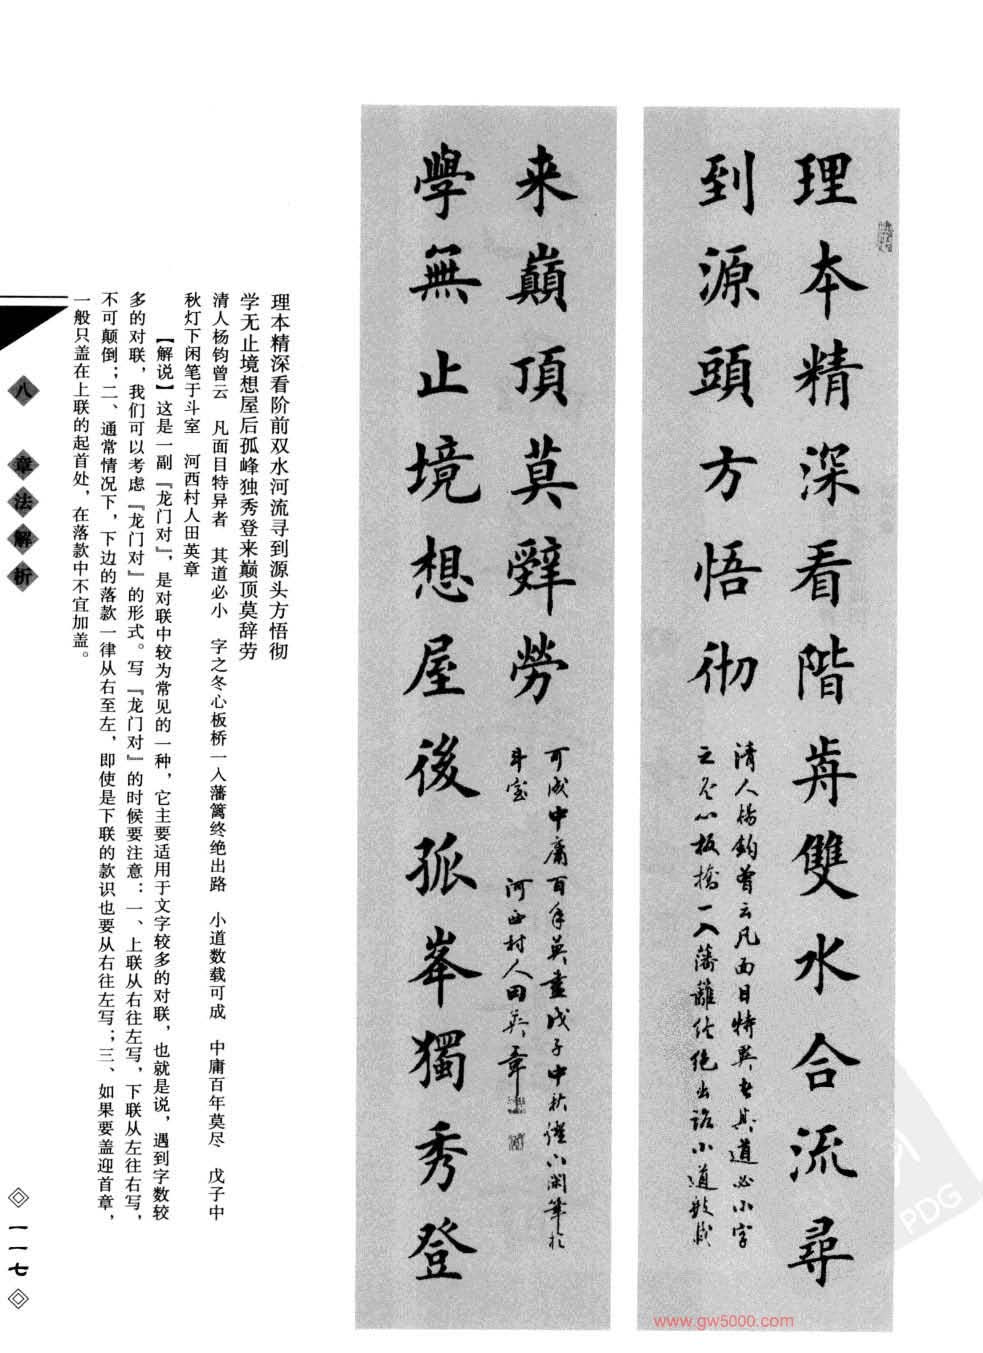 理本精深看階前雙水合流尋
到源頭方悟彻
清人楊鈞曾云凡面目特異者其道必小字
之冬心板橋一入藩籬終絕出路小道數載
學無止境想屋後孤峯獨秀登
来巔頂莫辭勞
可成中庸百年莫盡戊子中秋燈下閑筆於
斗室 河西村人田英章
理本精深看阶前双水河流寻到源头方悟彻
学无止境想屋后孤峰独秀登来巅顶莫辞劳
清人杨钧曾云 凡面目特异者 其道必小 字之冬心板桥一入藩篱终绝出路 小道数载可成 中庸百年莫尽 戊子中
秋灯下闲笔于斗室 河西村人田英章
【解说】这是一副『龙门对』，是对联中较为常见的一种，它主要适用于文字较多的对联，也就是说，遇到字数较
多的对联，我们可以考虑『龙门对』的形式。写『龙门对』的时候要注意：一、上联从右往左写，下联从左往右写，
不可颠倒；二、通常情况下，下边的落款一律从右至左，即使是下联的款识也要从右往左写；三、如果要盖迎首章，
一般只盖在上联的起首处，在落款中不宜加盖。
八 章法解析
一一七
www.gw5000.com
PDG